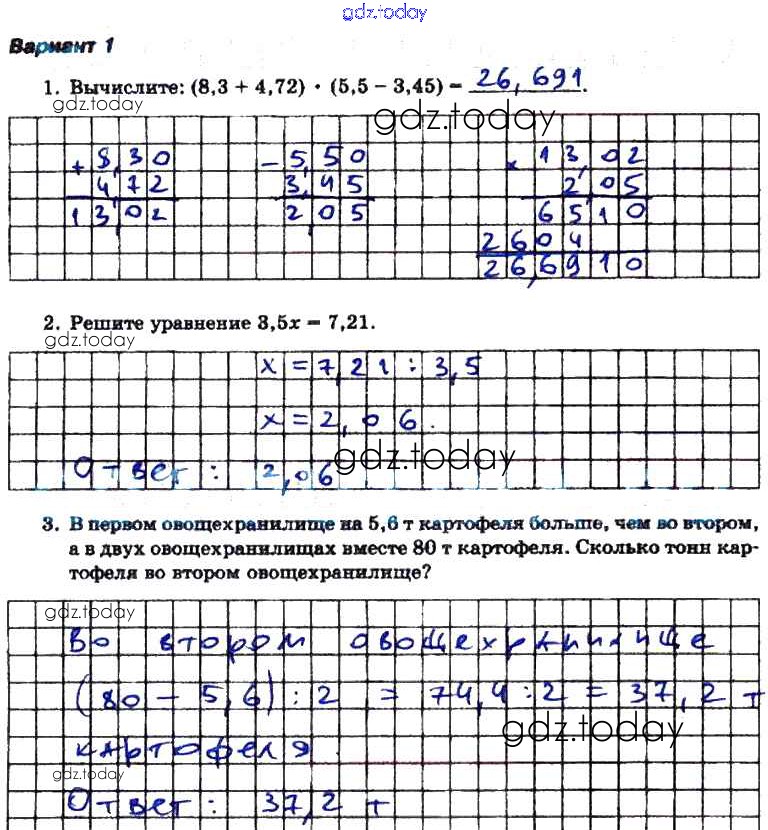 gdz.today
Вариант 1
1. Вычислите: (8,3 + 4,72) · (5,5 – 3,45) = 26,691.
gdz.today
gdz.today
+ 8,30
4,72
13,02
– 5,50
3,45
2,05
× 13,02
2,05
6510
2604
26,6910
2. Решите уравнение 3,5x = 7,21.
gdz.today
x = 7,21 : 3,5
x = 2,06.
Ответ: 2,06
gdz.today
3. В первом овощехранилище на 5,6 т картофеля больше, чем во втором,
а в двух овощехранилищах вместе 80 т картофеля. Сколько тонн кар-
тофеля во втором овощехранилище?
gdz.today
Во втором овощехранилище
(80 – 5,6) : 2 = 74,4 : 2 = 37,2 т
gdz.today
картофеля.
gdz.today
Ответ: 37,2 т